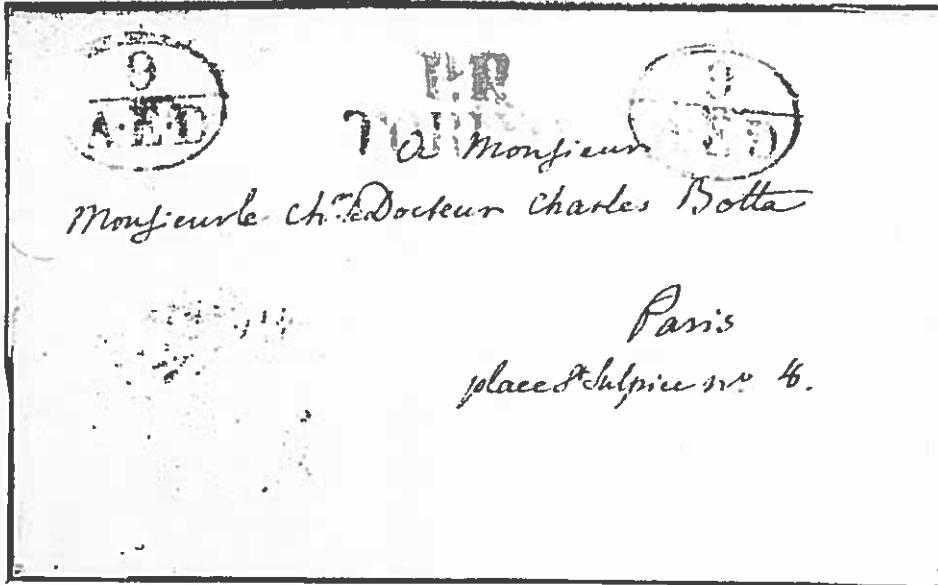 9
A·E·D
P.P.
a Monsieur
Monsieur le Ch.er Docteur Charles Botta
Paris
place St Sulpice no 8.